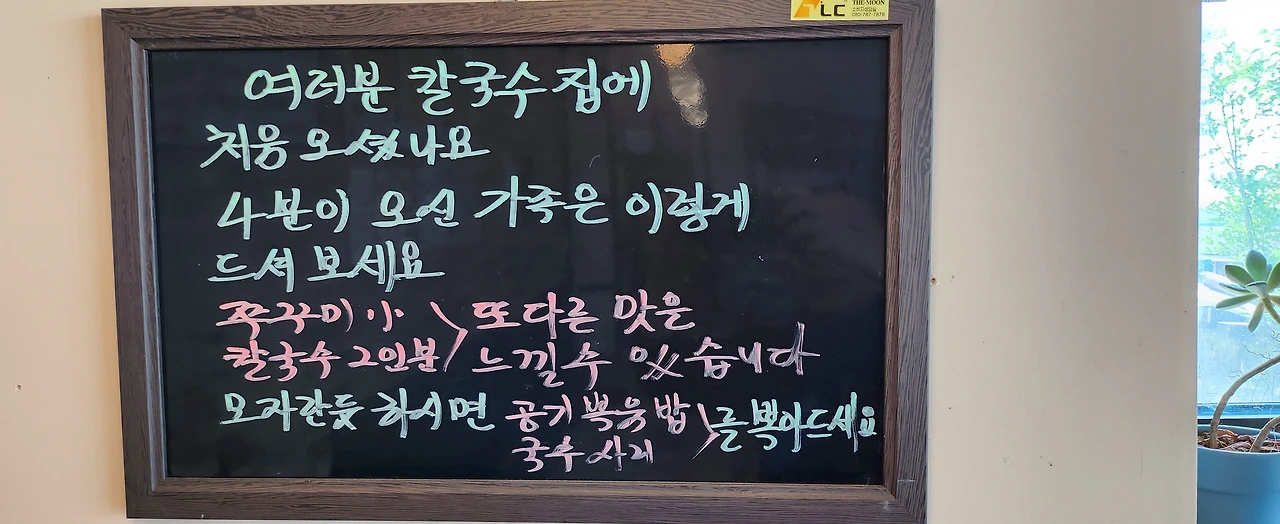 TLC THE-MOON
소비자상담실
080-787-7878
여러분 칼국수 집에
처음 오셨나요
4분이 오신 가족은 이렇게
드셔 보세요
쭈꾸미 小 > 또다른 맛은
칼국수 2인분 느낄수 있습니다
모자란듯 하시면 공기볶음밥 > 를 볶아드세요
국수사리